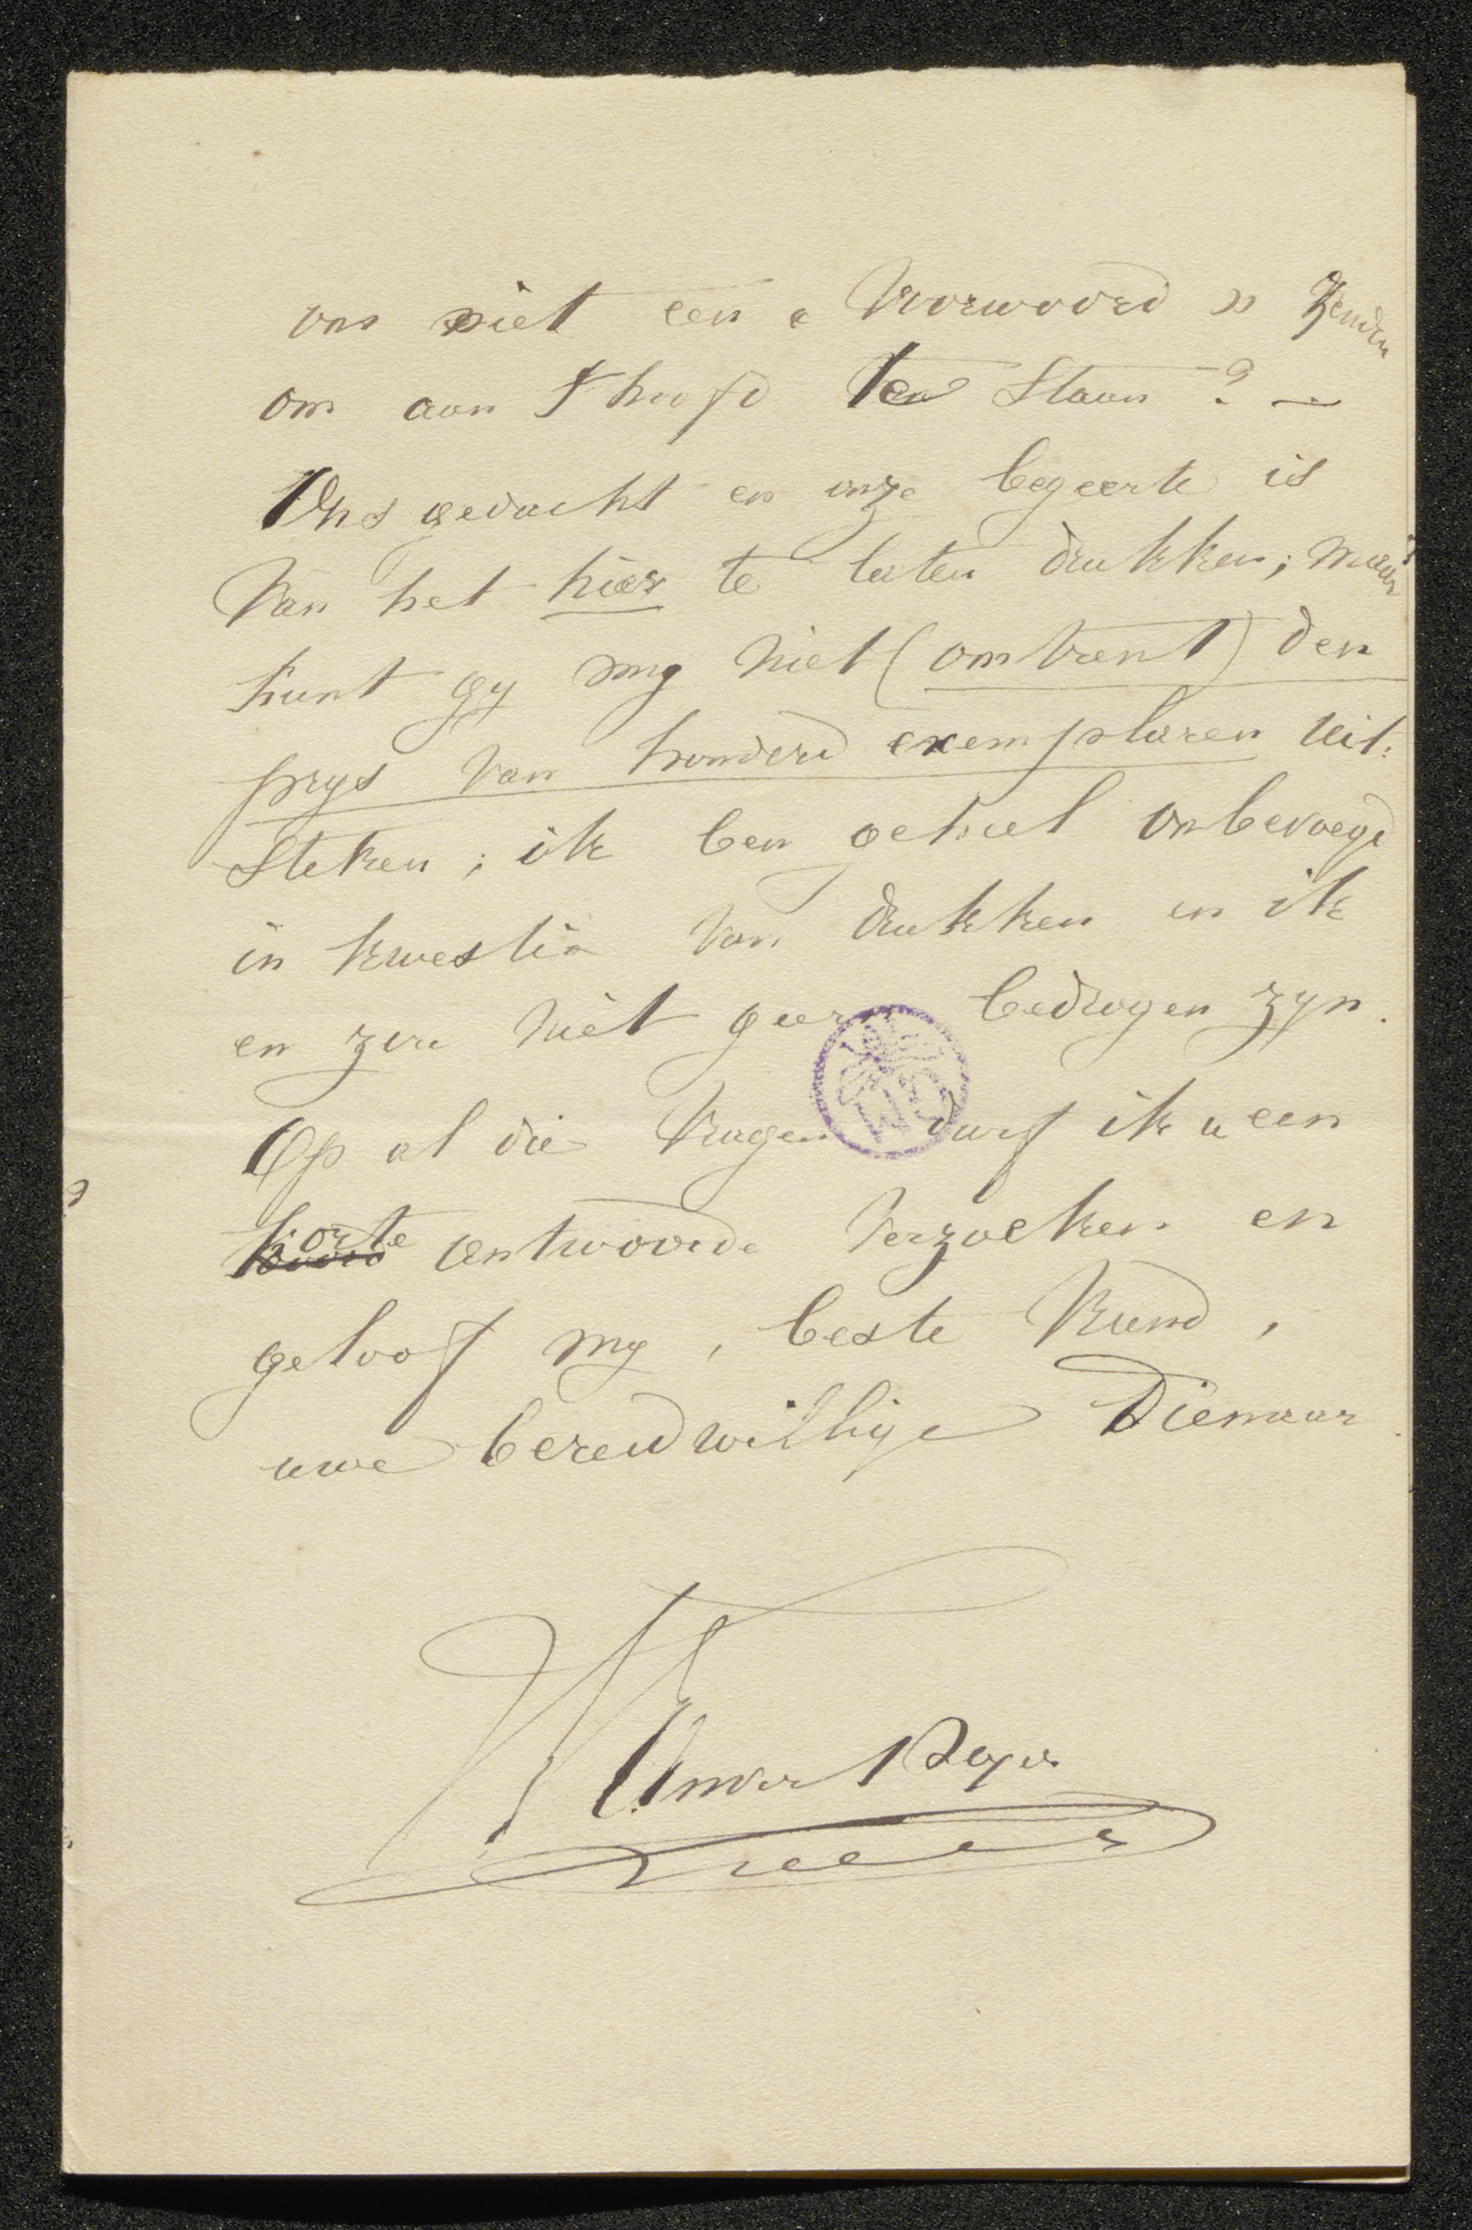 ons niet een « Voorwoord » zenden
om aan 't hoofd te staan? —
Ons gedacht en onze begeerte is
van het hier te laten drukken; maar
kunt gy my niet (omtrent) den
prys van honderd exemplaren uit-
steken; ik ben geheel onbevoegd
in kwestie van drukken en ik
en zou niet geern bedrogen zyn.
Op al die vragen durf ik u een
korte antwoorde verzoeken en
geloof my, beste Vriend,
uwe bereidwillige Dienaar